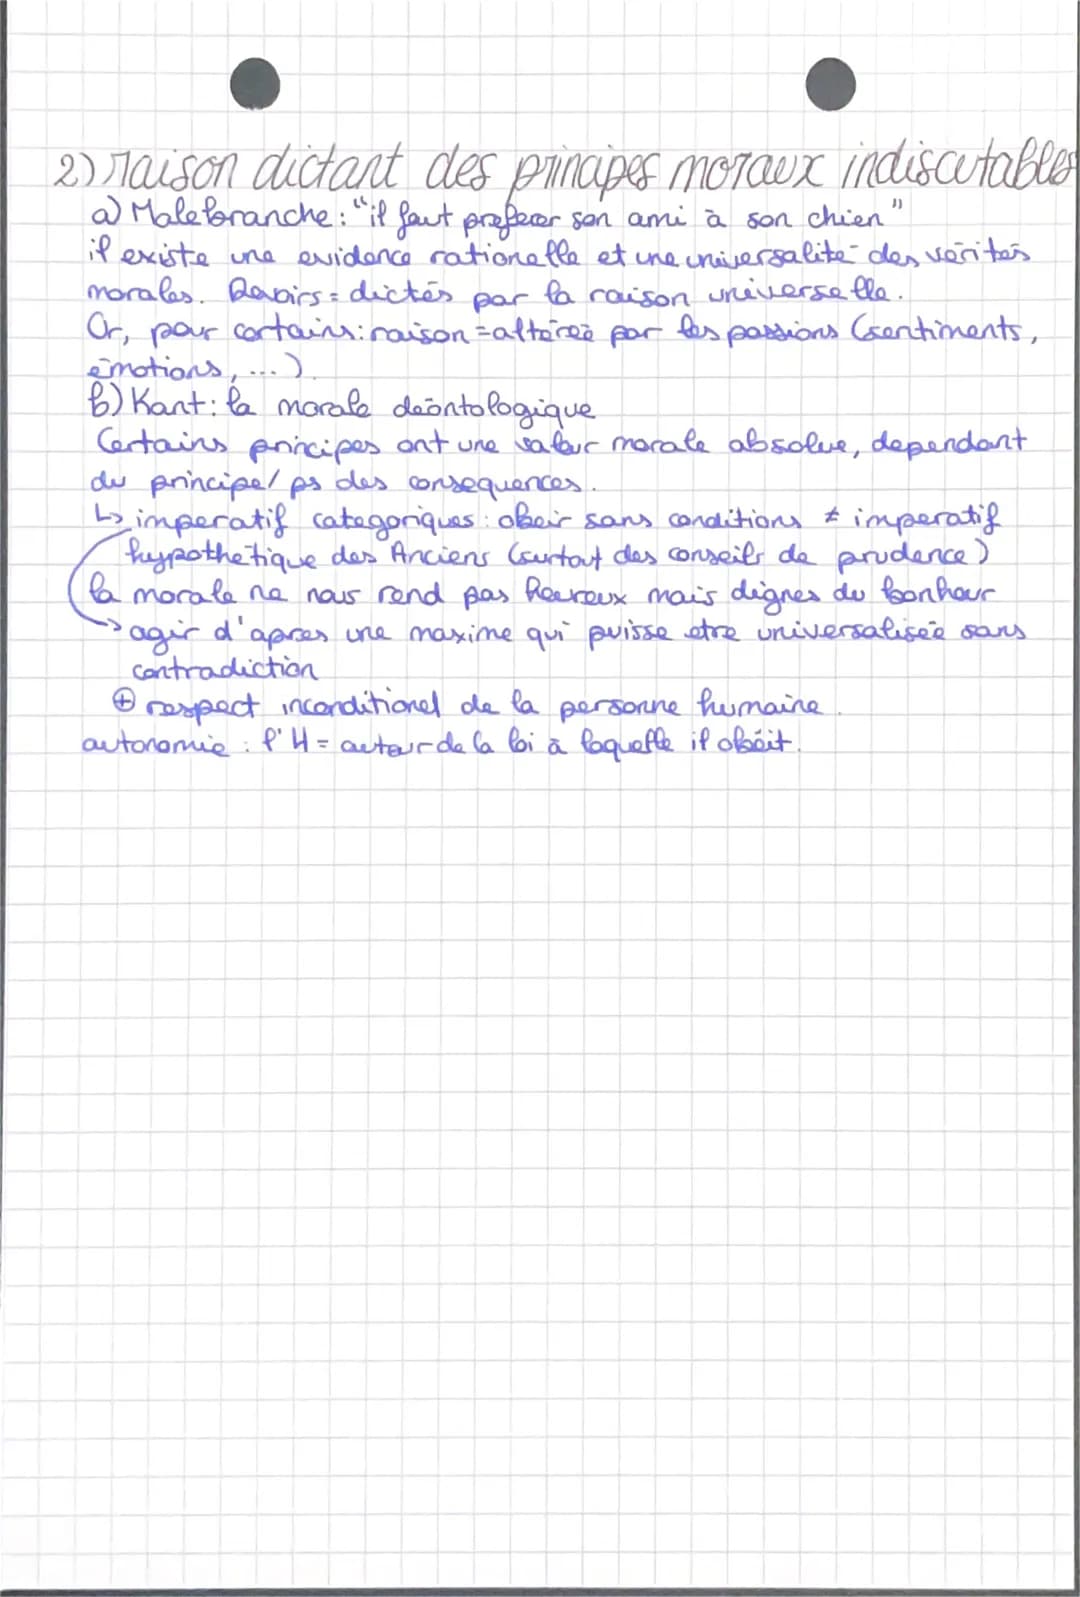 2) raison dictant des principes moraux indiscutables
a) Malebranche : "il faut preferer son ami à son chien"
il existe une evidence rationelle et une universalité des vérités
morales. Devoirs = dictés par la raison universelle.
Or, pour certains : raison = altérée par les passions (sentiments,
émotions, ...)
b) Kant : la morale déontologique
Certains principes ont une valeur morale absolue, dependant
du principe / ps des consequences.
↳ imperatif categoriques : obeir sans conditions ≠ imperatif
hypothetique des Anciens (surtout des conseils de prudence)
la morale ne nous rend pas heureux mais dignes du bonheur
→ agir d'apres une maxime qui puisse etre universalisée sans
contradiction
⊕ respect inconditionel de la personne humaine.
autonomie : l'H = auteur de la loi à laquelle il obéit.